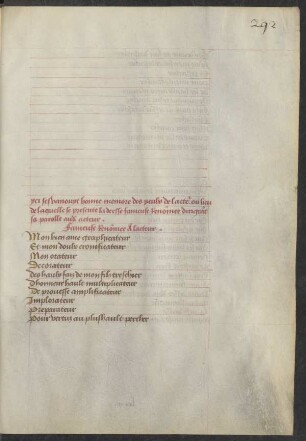 292
Icy s'esvanouyt bonne memoire des yeulx de l'acteur ou lieu
de laquelle se presente la deesse fameuse renommee dirigant
sa parolle audit acteur.
Fameuse renommee A lacteur.
Mon bien ame explicateur
Et mon doulx cronificateur
Mon orateur
Decorateur
des haulx fais de mon filz treschier
Dhonneur hault multiplicateur
De prouesse amplificateur
Implorateur
Preparateur
Pour vertu au plus hault percher